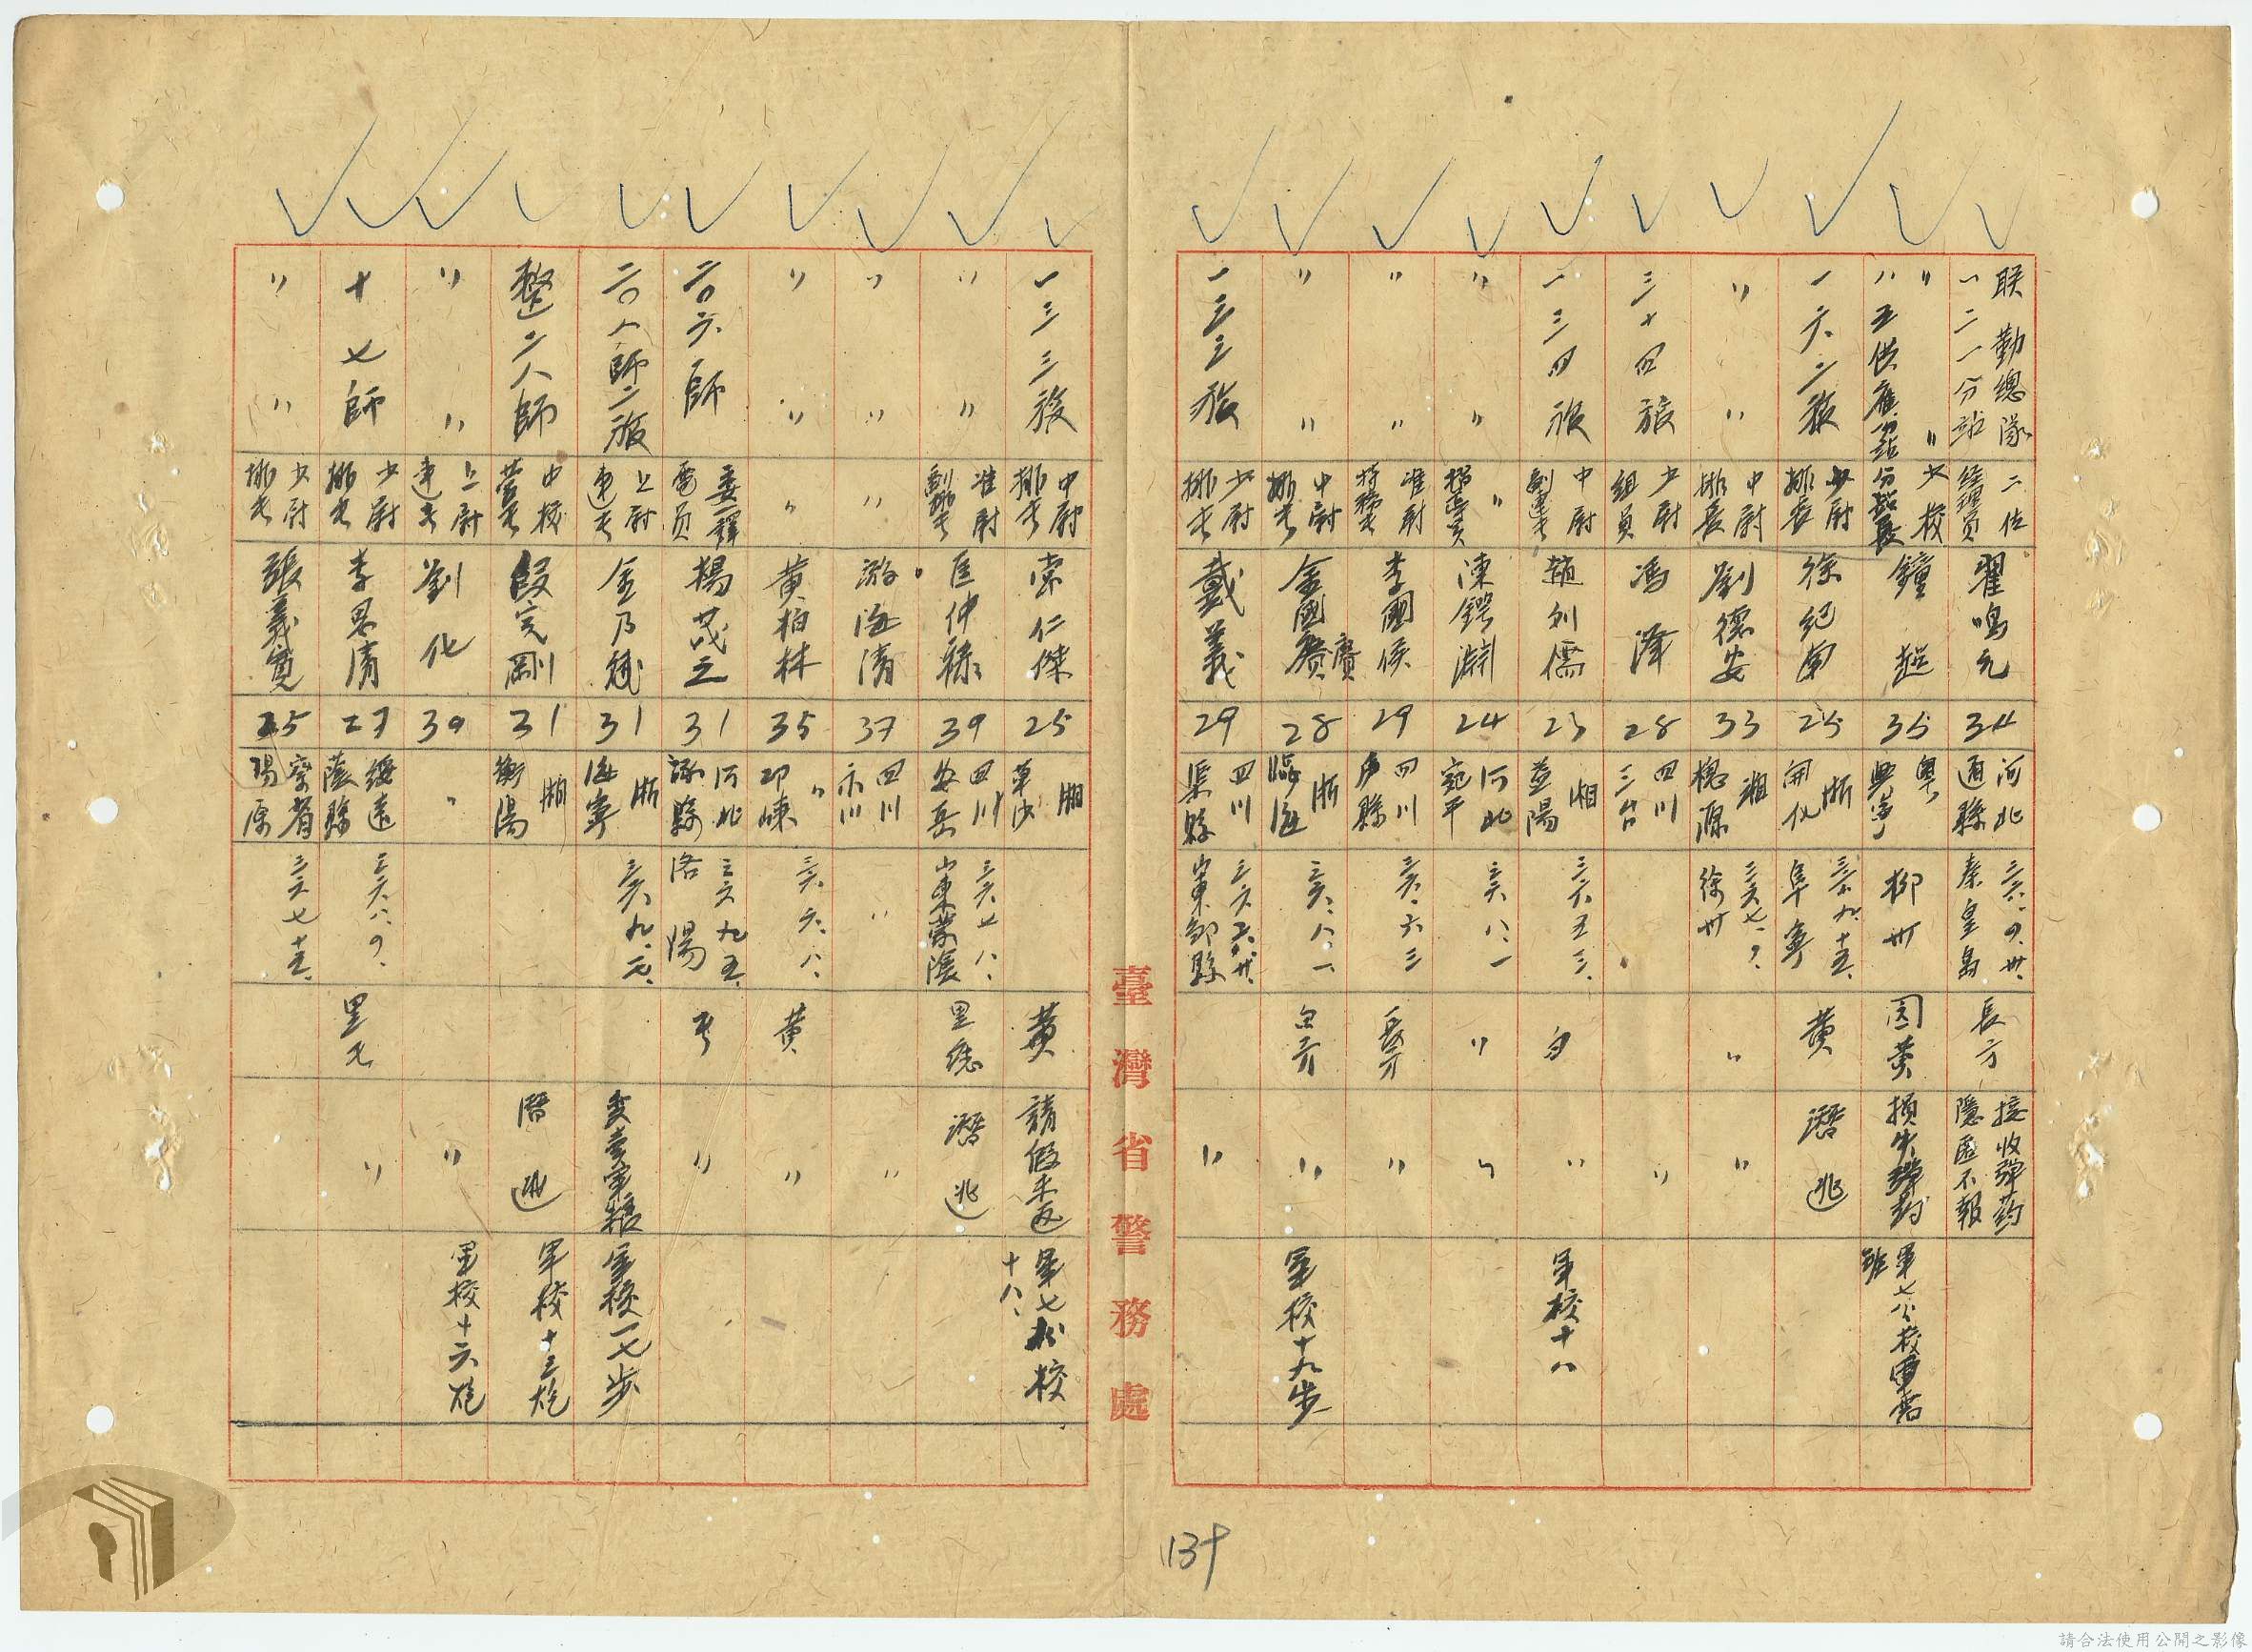 联勤總隊
一二一分站
二佐
经理員
翟鳴九
34
河北
通縣
三六.四.卅.
秦皇島
長方
接收弹药
隱匿不報
〃 〃
八五供應分站
少校
分站長
鐘超
35
粵
興寧
柳州
因黄
損失弹药
軍七分校軍官班
一六二旅
少尉
排長
徐纪南
25
浙
開化
三六.九.十五.
阜寧
黄
潛逃
〃 〃
中尉
排長
劉德安
33
湘
桃源
三六.七.四.
徐州
〃
〃
三十四旅
少尉
組員
馮澤
28
四川
三台
〃
一三四旅
中尉
副連長
趙列儒
23
湘
益陽
三六.五.三.
白
〃
軍校十八
〃 〃
〃
指導員
陳鍔淵
24
河北
宛平
三六.八.一
〃
〃
〃 〃
准尉
特務長
李國侯
29
四川
卢縣
三六.六.三
〃
〃 〃
中尉
排長
金國賡
賡
28
浙
臨海
三六.八.一
〃
軍校十九步
一三三旅
少尉
排長
戴義
29
四川
渠縣
三六.六.廿.
山東鄒縣
〃
一三三旅
中尉
排長
常仁傑
25
湘
長沙
黄
請假未返
軍七分校
十八、
〃 〃
准尉
副排長
匡仲祿
39
四川
安岳
三六.七.八.
山東蒙陰
黑痣
潛逃
〃 〃
〃
游海清
37
四川
〃
〃
〃 〃
〃
黄柏林
35
〃
邛崍
三六.六.八.
黄
〃
二〇六師
委一譯
電員
楊茂之
31
河北
涿縣
三六.九.五.
洛陽
〃
二〇八師二旅
上尉
連長
金乃斌
31
浙
海寧
三六.九.二.
变卖軍粮
軍校一七步
整二八師
中校
营長
段克剛
31
湘
衡陽
潛逃
軍校十三炮
〃 〃
上尉
連長
劉化
30
〃
〃
軍校十六炮
十七師
少尉
排長
李恩清
27
綏遠
薩縣
三六.八.四.
〃
〃 〃
少尉
排長
張義寬
25
察省
陽原
三六.七.十五.
臺灣省警務處
139
請合法使用公開之影像